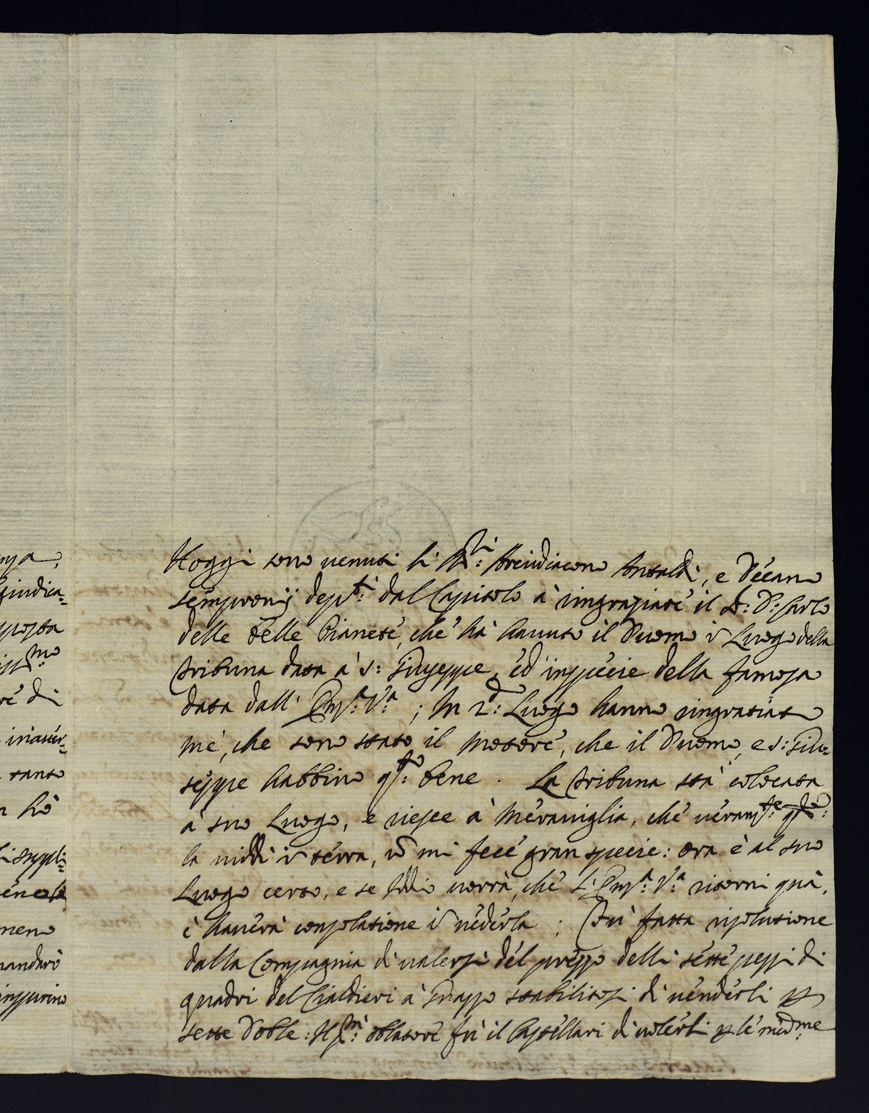 nza,
giudica-
pposta
Ill.mo
re di
inaver-
tanto
n hò
li suppli-
meno
mandarò
Hoggi sono venuti li SS.ri Arcidiacono Antaldi, e Decano
Sempronij dep.ti dal Capitolo à ringraziare il S: D: Carlo
delle belle Pianete, che hà havuto il Duomo in Luogo della
tribuna data à S: Giuseppe, ed in specie della famosa
data dall' Em.a V.a; In 2.do Luogo hanno ringratiato
me, che sono stato il motore, che il Duomo, e S: Giu-
seppe habbino q.to bene. La tribuna stà colocata
à suo Luogo, e riesce à meraviglia, che veram.te
la viddi in terra, non mi fece gran specie: ora è al suo
Luogo certo, e se Iddio vorrà, che l'Em.a V.a ritorni quà,
è haverà consolatione in vederla; Qui fatta risolutione
dalla Compagnia di valersi del prezzo delli sette pezzi di
quadri del Cialdieri à Grasso stabilitosi di venderli p
sette doble: Il p.mo oblatore fù il Castellari di volerli p le medme